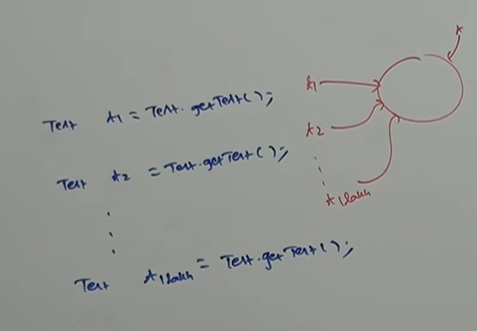 Test t1 = Test.getTest();
t1
t
Test t2 = Test.getTest();
t2
Test t1lakh = Test.getTest();
t1lakh